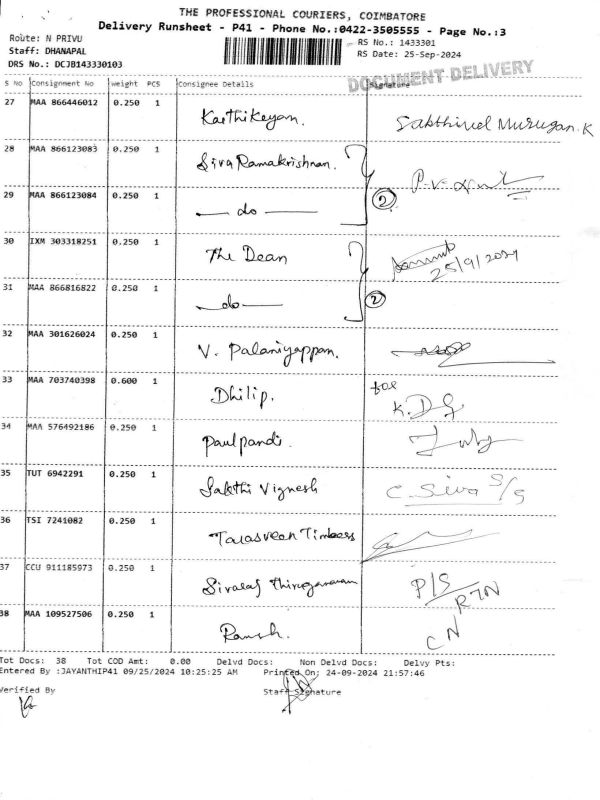 THE PROFESSIONAL COURIERS, COIMBATORE
Delivery Runsheet - P41 - Phone No.:0422-3505555 - Page No.:3
Route: N PRIVU
RS No.: 1433301
Staff: DHANAPAL
RS Date: 25-Sep-2024
DRS No.: DCJB143330103
DOCUMENT DELIVERY
S No Consignment No Weight PCS Consignee Details Signature
27 MAA 866446012 0.250 1 Karthikeyan. Sakthivel Murugan.K
28 MAA 866123083 0.250 1 Siva Ramakrishnan. P.V.
29 MAA 866123084 0.250 1 — do — 2
30 IXM 303318251 0.250 1 The Dean 25/9/2024
31 MAA 866816822 0.250 1 — do — 2
32 MAA 301626024 0.250 1 V. Palaniyappan.
33 MAA 703740398 0.600 1 Dhilip. for K.D
34 MAA 576492186 0.250 1 Paulpandi.
35 TUT 6942291 0.250 1 Sakthi Vignesh C. Siva S/S
36 TSI 7241082 0.250 1 Timbers
37 CCU 911185973 0.250 1 P/S RTN
38 MAA 109527506 0.250 1 CN
Tot Docs: 38 Tot COD Amt: 0.00 Delvd Docs: Non Delvd Docs: Delvy Pts:
Entered By :JAYANTHIP41 09/25/2024 10:25:25 AM Printed On: 24-09-2024 21:57:46
Verified By Staff Signature